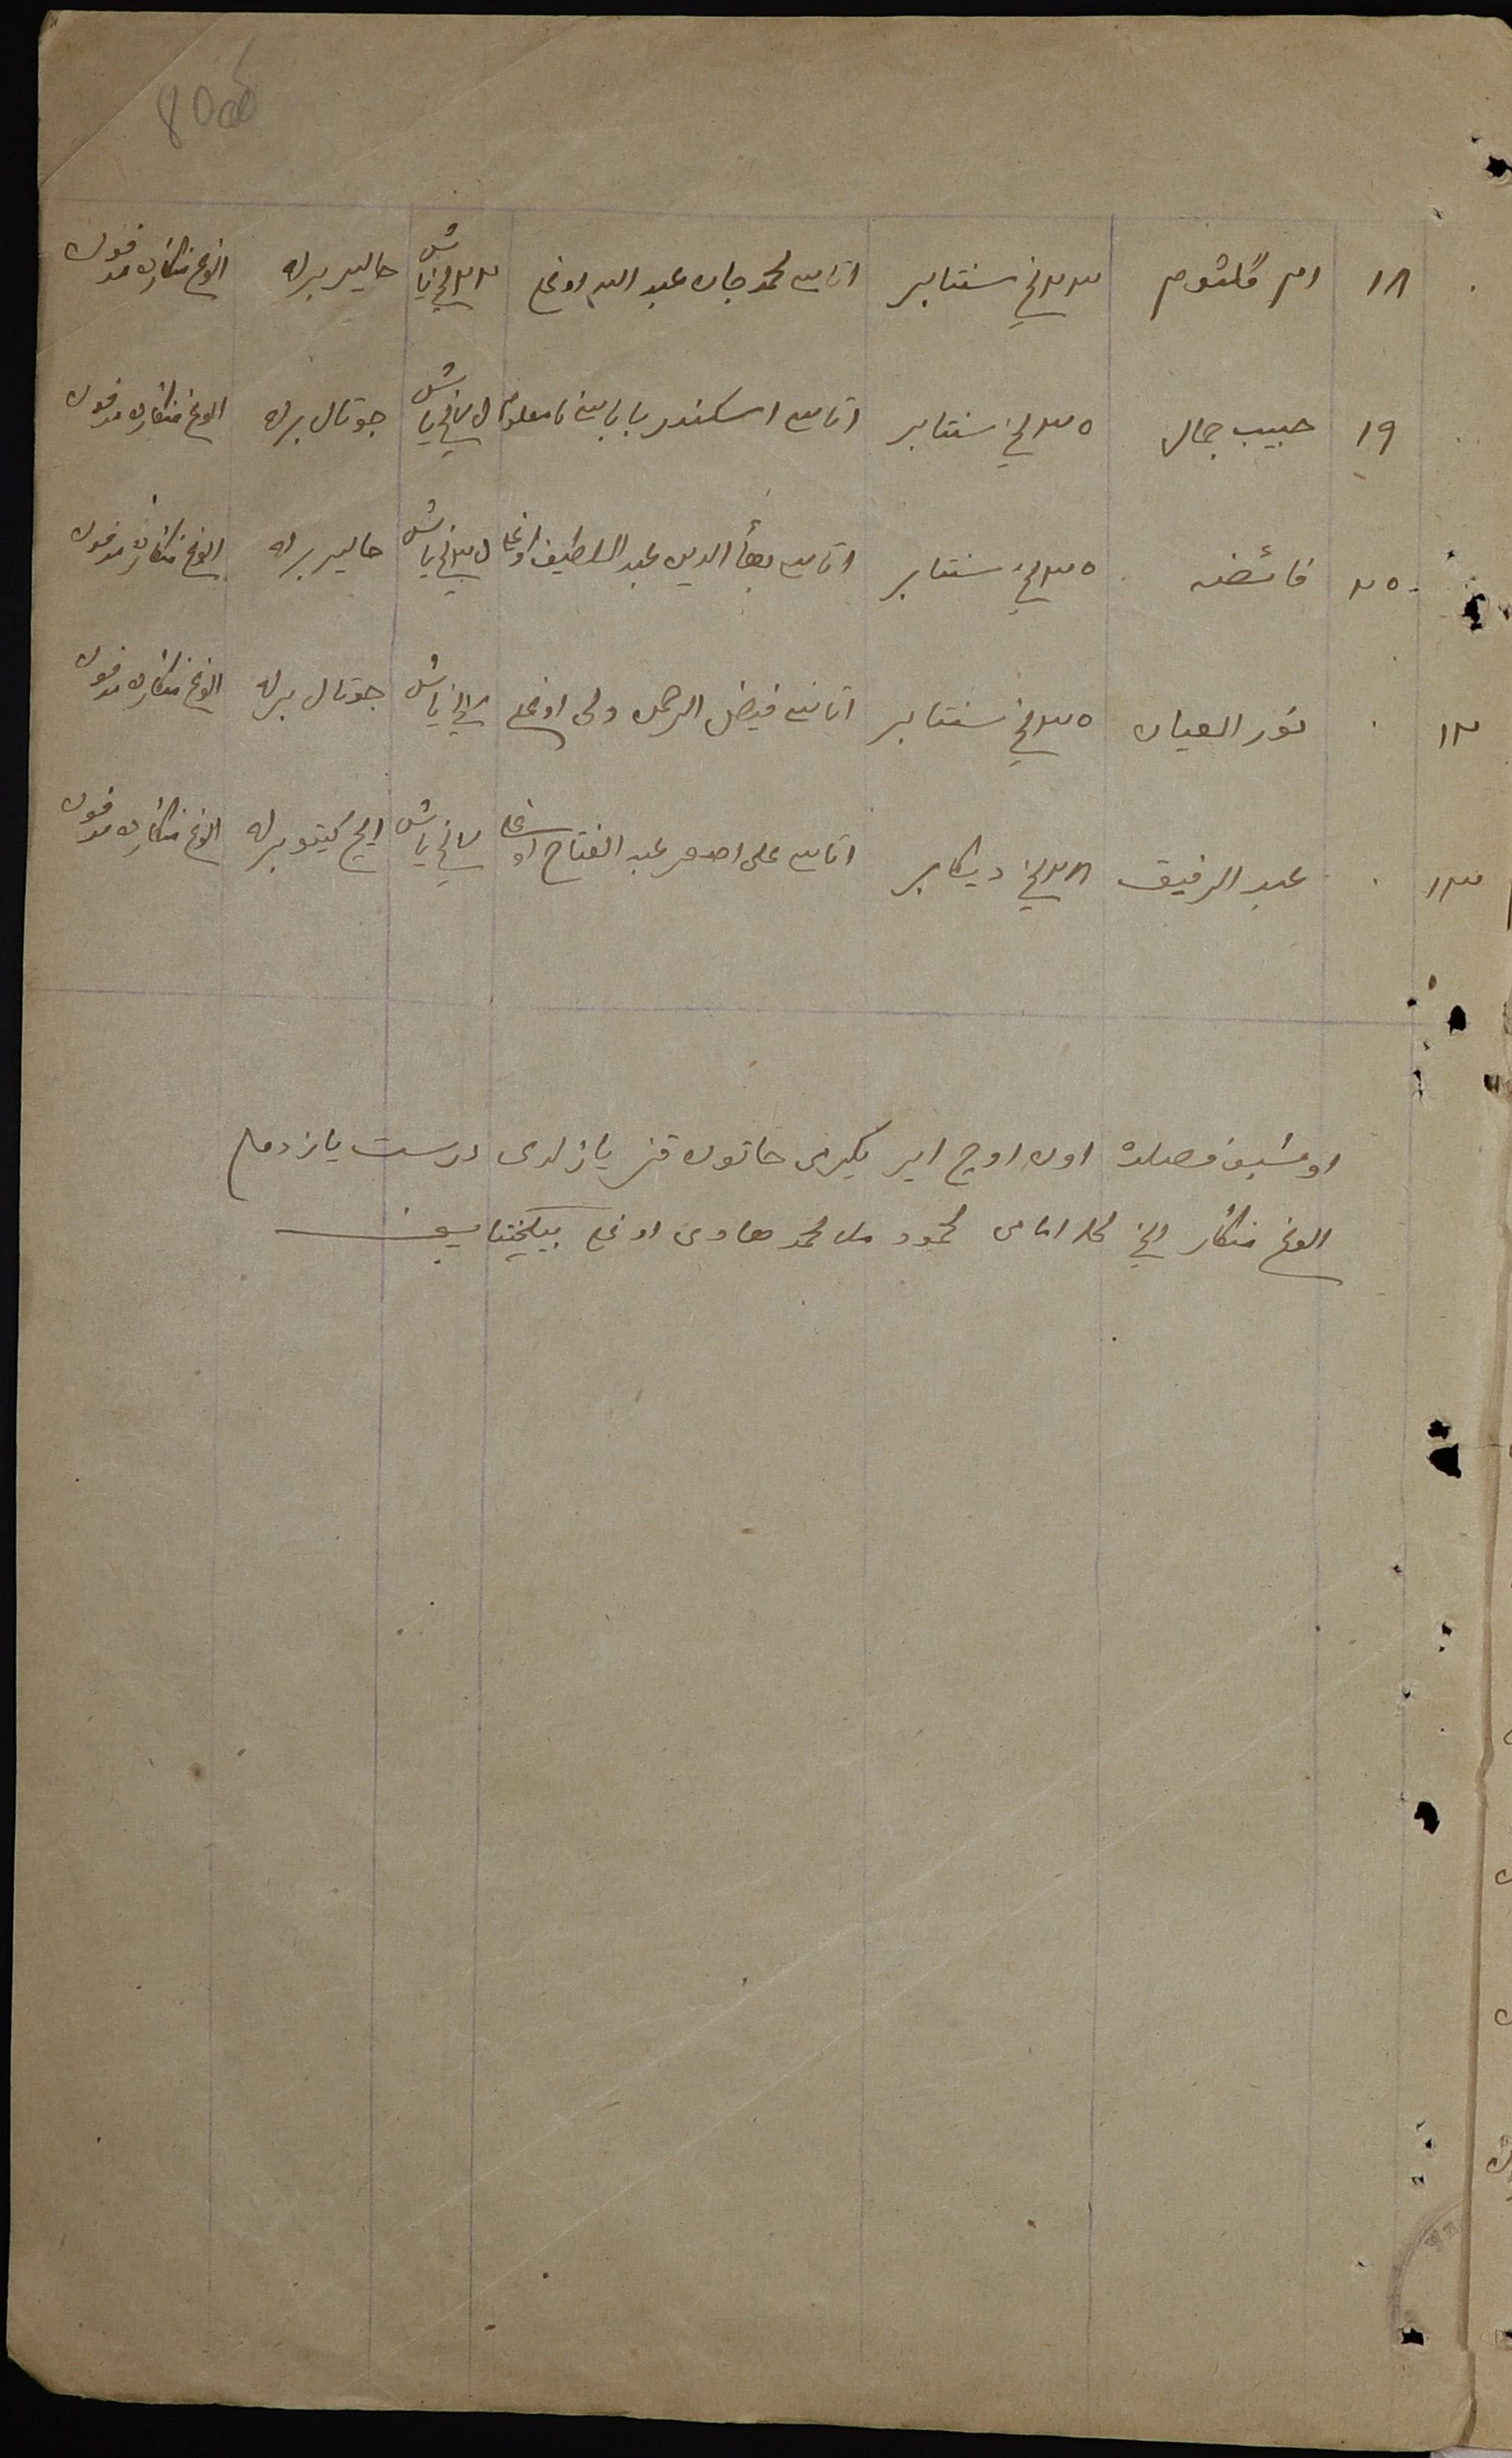 80 об
١٨ ام گلثوم ٢٣ نچی سنتابر اتاسی محمد جان عبد الله اوغلی ٢٢ نچی یاش حالیر برله الوغ منکارده مدفون
١٩ حبیب جمال ٢٥ نچی سنتابر اتاسی اسکندر باباسی نامعلوم نچی یاش جوتال برله الوغ منکارده مدفون
٢٥ فائضه ٢٥ نچی سنتابر اتاسی بهأ الدین عبد اللطیف اوغلی نچی یاش حالیر برله الوغ منکارده مدفون
١٢ نور العیان ٢٥ نچی سنتابر اتاسی فیض الرحمن ولی اوغلی نچی یاش جوتال برله الوغ منکارده مدفون
١٣ عبد الرفیق ٢٨ نچی دیکابر اتاسی علی اصغر عبد الفتاح اوغلی نچی یاش ایچ کیتو برله الوغ منکارده مدفون
اوشبو فصلده اون اوچ ایر یکرمی خاتون قز یازلدی درست یازدم
الوغ منکار نچی محله امامی محمود ملا محمد هادی اوغلی بیکچنتایف